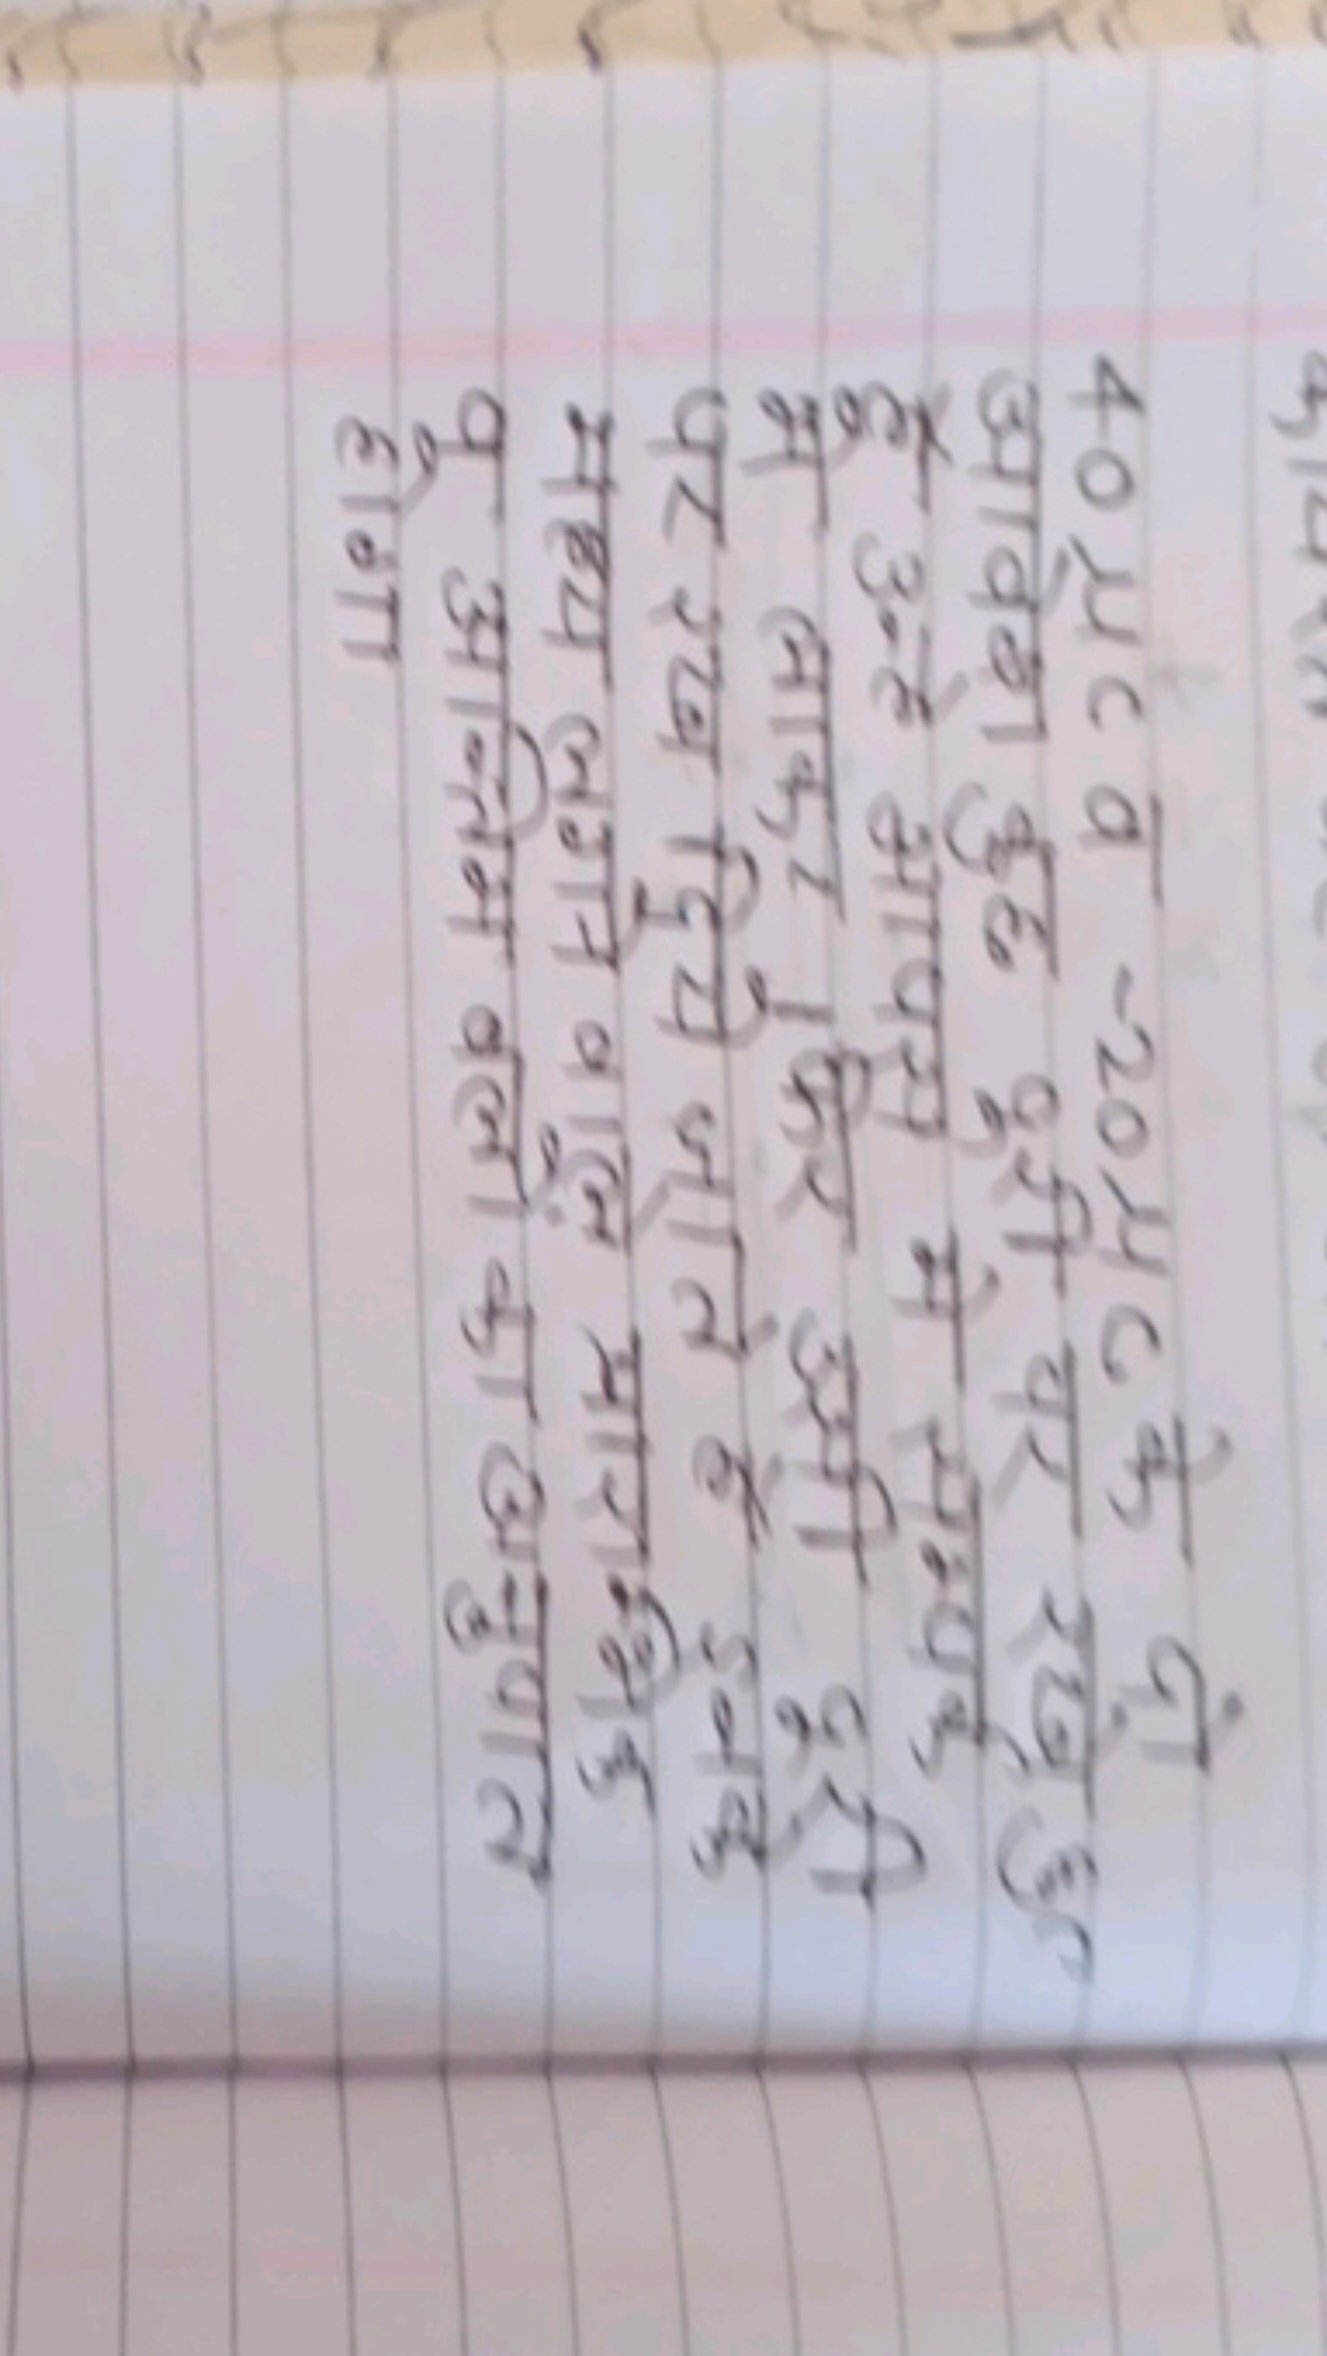 40μC व -20μC के दो
आवेश कुछ दूरी पर रखे हुए
है उन्हे आपस मे सम्पर्क
मे लाकर फिर उसी दूरी
पर रख दिये जाते है इनके
मध्य लगने वाले प्रारम्भिक
व अन्तिम बलो का अनुपात
होगा